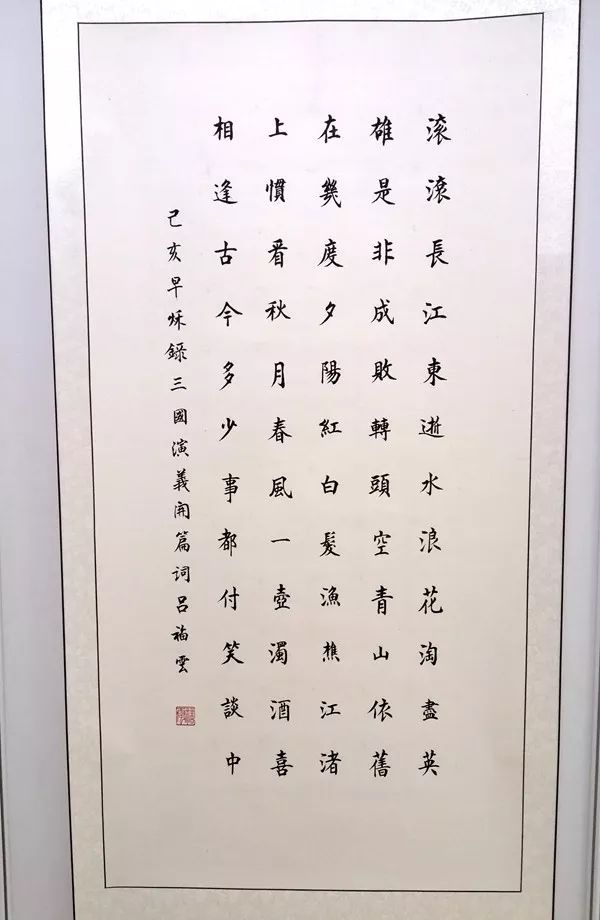 滚滾長江東逝水浪花淘盡英
雄是非成敗轉頭空青山依舊
在幾度夕陽紅白髮漁樵江渚
上慣看秋月春風一壺濁酒喜
相逢古今多少事都付笑談中
己亥早秌錄三國演義開篇詞吕福雲